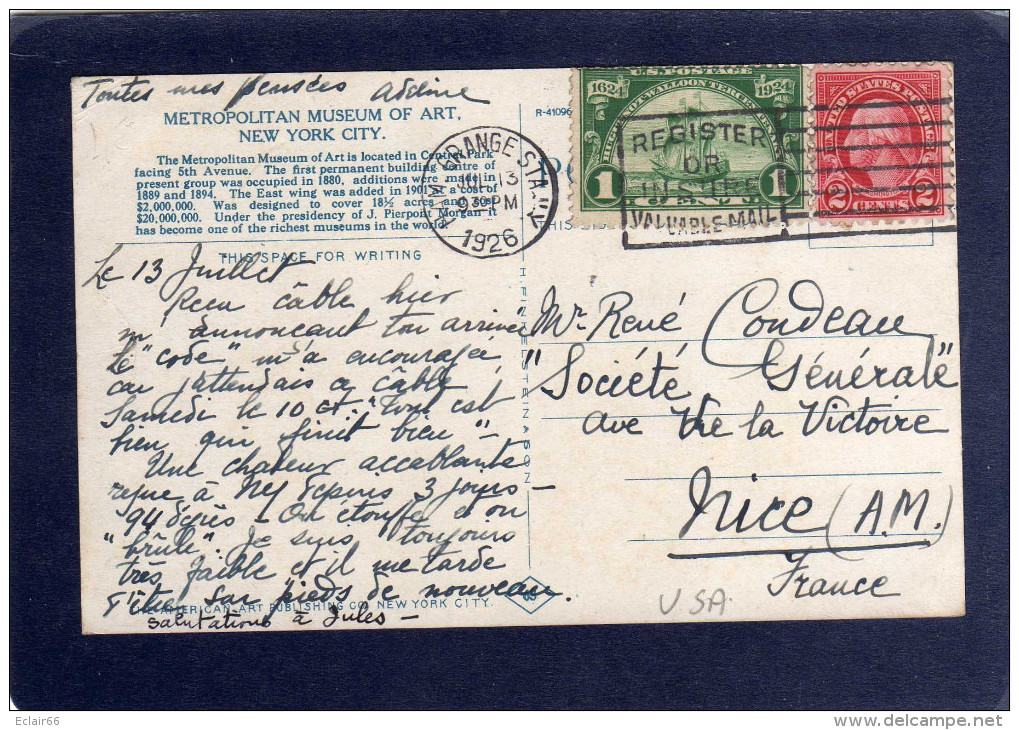 Toutes mes pensées
METROPOLITAN MUSEUM OF ART,
NEW YORK CITY.
The Metropolitan Museum of Art is located in Central Park
facing 5th Avenue. The first permanent building centre of
present group was occupied in 1880, additions were made in
1889 and 1894. The East wing was added in 1901 at a cost of
$2,000,000. Was designed to cover 18½ acres and cost
$20,000,000. Under the presidency of J. Pierpont Morgan it
has become one of the richest museums in the world.
THIS SPACE FOR WRITING
Le 13 Juillet
Reçu câble hier
m'annonçant ton arrivée
Le "code" m'a encouragée
car j'attendais ce câble
Samedi le 10 ct. "Tout est
bien qui finit bien" -
Une chaleur accablante
règne à NY depuis 3 jours -
94 degrés - On étouffe et on
"brûle". Je suis toujours
très faible et il me tarde
d'être sur pieds de nouveau.
THE AMERICAN ART PUBLISHING CO. NEW YORK CITY.
Salutations à Jules -
R-41096
H. FINKELSTEIN & SON
GRANGE STA.
JUL 13
9 30 PM
1926
N.J.
U.S. POSTAGE
1624
1924
HUGUENOT-WALLOON TERCENTENARY
1
1
UNITED STATES POSTAGE
2
CENTS
2
REGISTER
OR
INSURE
VALUABLE MAIL
Mr. René Condeau
"Société Générale"
Ave de la Victoire
Nice (A.M.)
France
USA.
Eclair66
www.delcampe.net